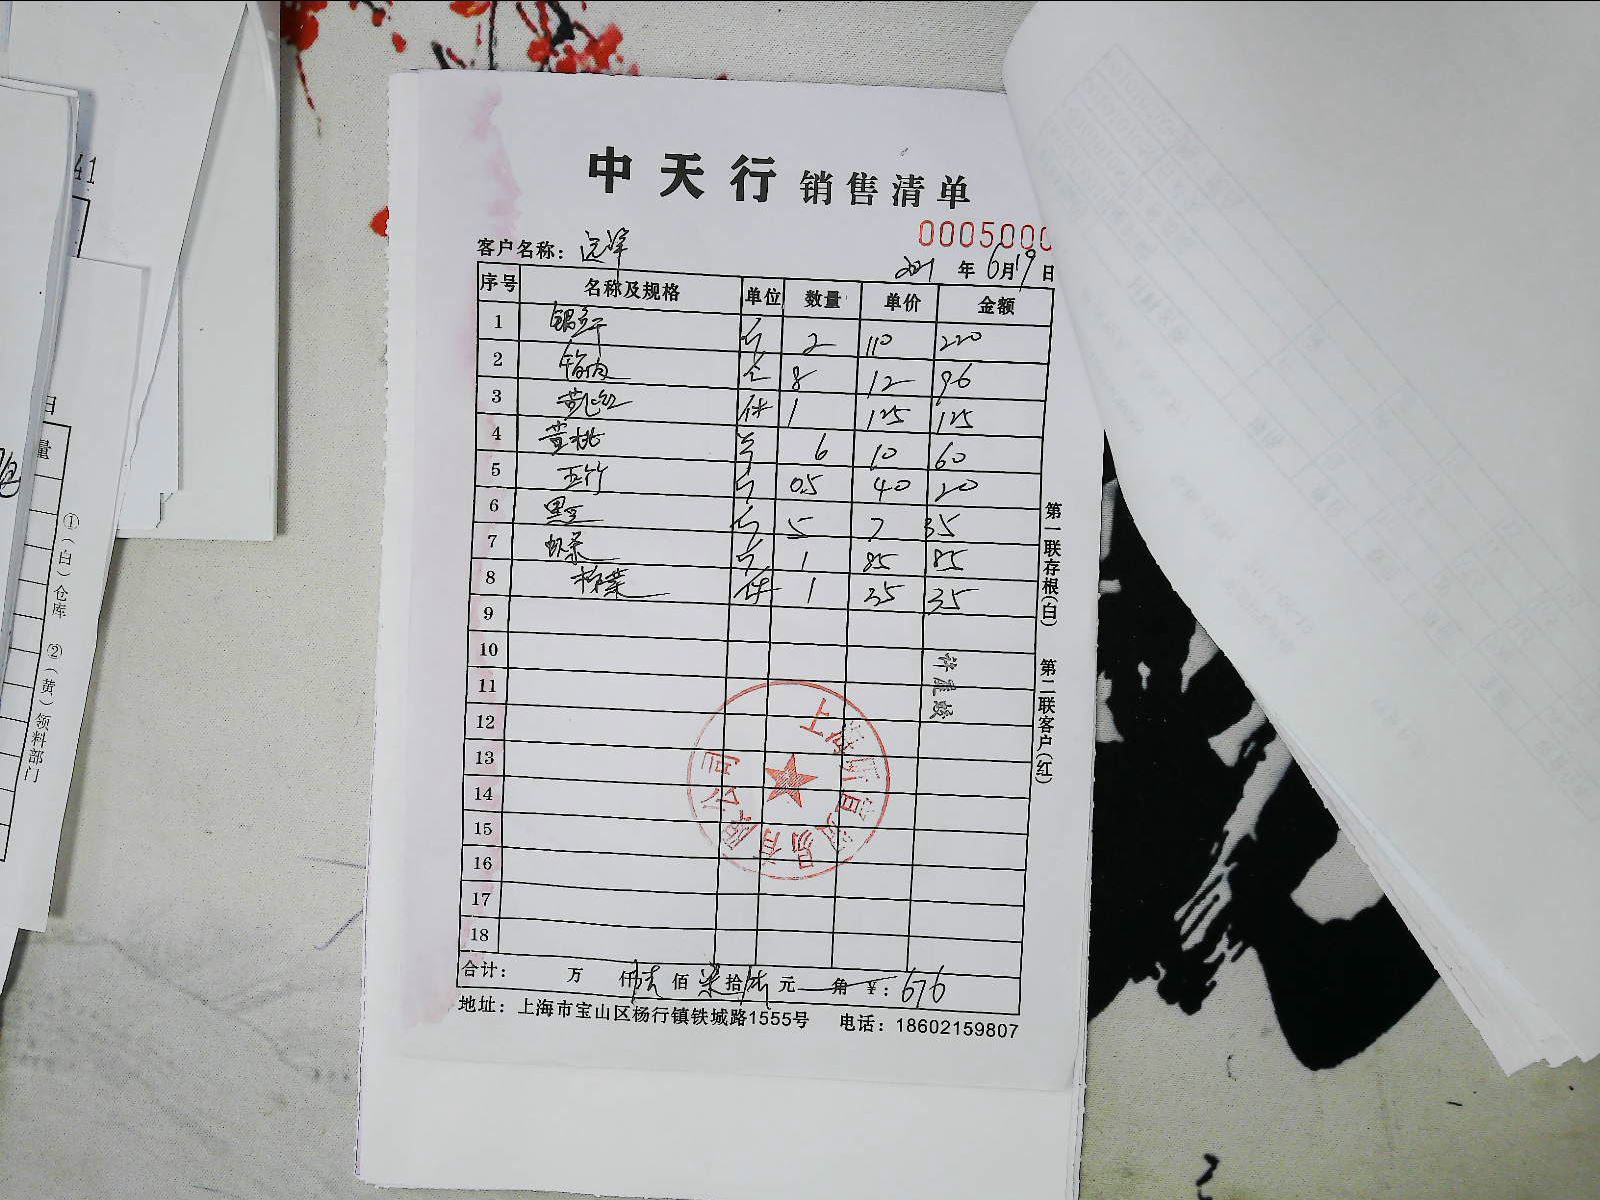 中天行 销售清单
0005000
客户名称：远洋
2021 年 6月19日
序号 名称及规格 单位 数量 单价 金额
1 斤 2 110 220
2 8 12 96
3 黄飞红 件 1 125 125
4 黄桃 6 10 60
5 玉竹 斤 0.5 40 20
6 黑豆 斤 5 7 35
7 虾 斤 1 85 85
8 件 1 35 35
9
10
11
12
13
14
15
16
17
18
合计： 万 仟 陆 佰 柒 拾 陆 元 角 ¥：676
地址：上海市宝山区杨行镇铁城路1555号 电话：18602159807
第一联存根(白) 第二联客户(红)
上海 贸易有限公司
41
量
①(白)仓库 ②(黄)领料部门